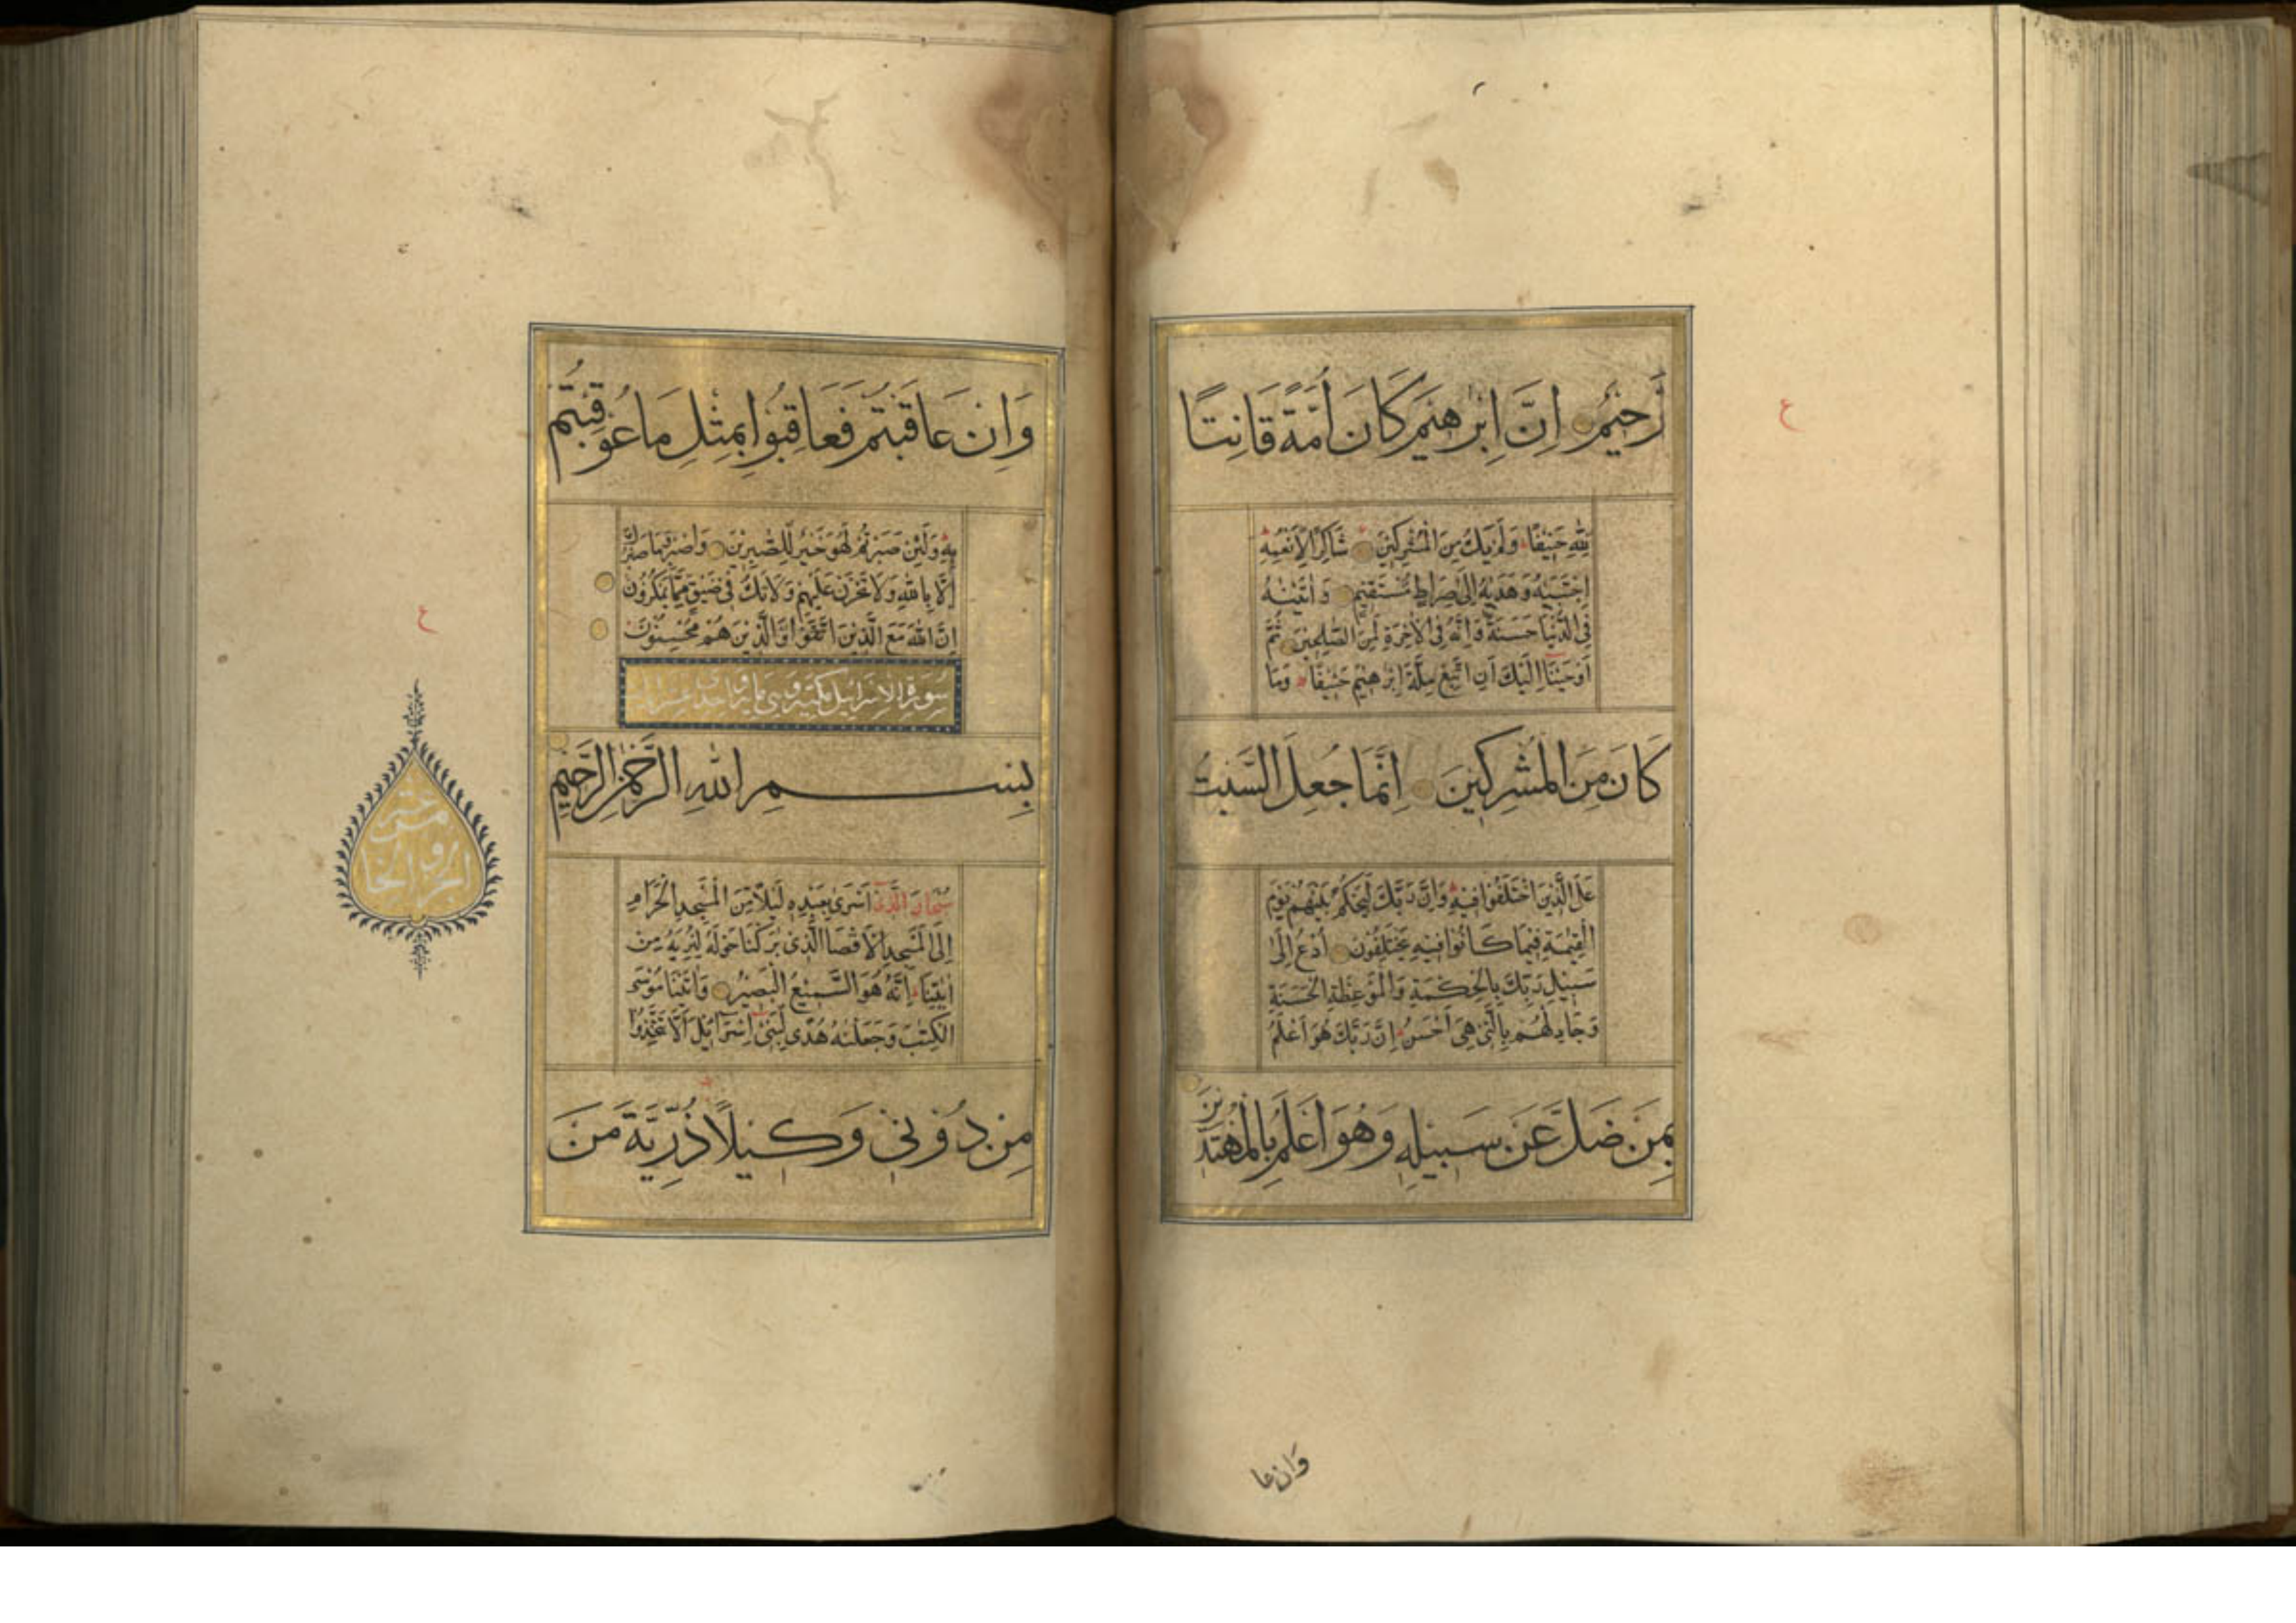 رَحِيمٌ اِنَّ اِبْرٰهِيمَ كَانَ اُمَّةً قَانِتًا
لِلّٰهِ حَنِيفًا وَلَمْ يَكُ مِنَ الْمُشْرِكِينَ شَاكِرًا لِاَنْعُمِهِ
اِجْتَبٰيهُ وَهَدٰيهُ اِلٰى صِرَاطٍ مُسْتَقِيمٍ وَاٰتَيْنٰهُ
فِى الدُّنْيَا حَسَنَةً وَاِنَّهُ فِى الْاٰخِرَةِ لَمِنَ الصّٰلِحِينَ ثُمَّ
اَوْحَيْنَا اِلَيْكَ اَنِ اتَّبِعْ مِلَّةَ اِبْرٰهِيمَ حَنِيفًا وَمَا
كَانَ مِنَ الْمُشْرِكِينَ اِنَّمَا جُعِلَ السَّبْتُ
عَلَى الَّذِينَ اخْتَلَفُوا فِيهِ وَاِنَّ رَبَّكَ لَيَحْكُمُ بَيْنَهُمْ يَوْمَ
الْقِيٰمَةِ فِيمَا كَانُوا فِيهِ يَخْتَلِفُونَ اُدْعُ اِلٰى
سَبِيلِ رَبِّكَ بِالْحِكْمَةِ وَالْمَوْعِظَةِ الْحَسَنَةِ
وَجَادِلْهُمْ بِالَّتِى هِىَ اَحْسَنُ اِنَّ رَبَّكَ هُوَ اَعْلَمُ
بِمَنْ ضَلَّ عَنْ سَبِيلِهِ وَهُوَ اَعْلَمُ بِالْمُهْتَدِينَ
ع
وَاِنْ عَا
وَاِنْ عَاقَبْتُمْ فَعَاقِبُوا بِمِثْلِ مَا عُوقِبْتُمْ
بِهِ وَلَئِنْ صَبَرْتُمْ لَهُوَ خَيْرٌ لِلصّٰبِرِينَ وَاصْبِرْ وَمَا صَبْرُكَ
اِلَّا بِاللّٰهِ وَلَا تَحْزَنْ عَلَيْهِمْ وَلَا تَكُ فِى ضَيْقٍ مِمَّا يَمْكُرُونَ
اِنَّ اللّٰهَ مَعَ الَّذِينَ اتَّقَوْا وَالَّذِينَ هُمْ مُحْسِنُونَ
بِسْمِ اللّٰهِ الرَّحْمٰنِ الرَّحِيمِ
سُبْحَانَ الَّذِى اَسْرٰى بِعَبْدِهِ لَيْلًا مِنَ الْمَسْجِدِ الْحَرَامِ
اِلَى الْمَسْجِدِ الْاَقْصَا الَّذِى بٰرَكْنَا حَوْلَهُ لِنُرِيَهُ مِنْ
اٰيٰتِنَا اِنَّهُ هُوَ السَّمِيعُ الْبَصِيرُ وَاٰتَيْنَا مُوسَى
الْكِتٰبَ وَجَعَلْنٰهُ هُدًى لِبَنِى اِسْرَآئِيلَ اَلَّا تَتَّخِذُوا
مِنْ دُونِى وَكِيلًا ذُرِّيَّةَ مَنْ
ع